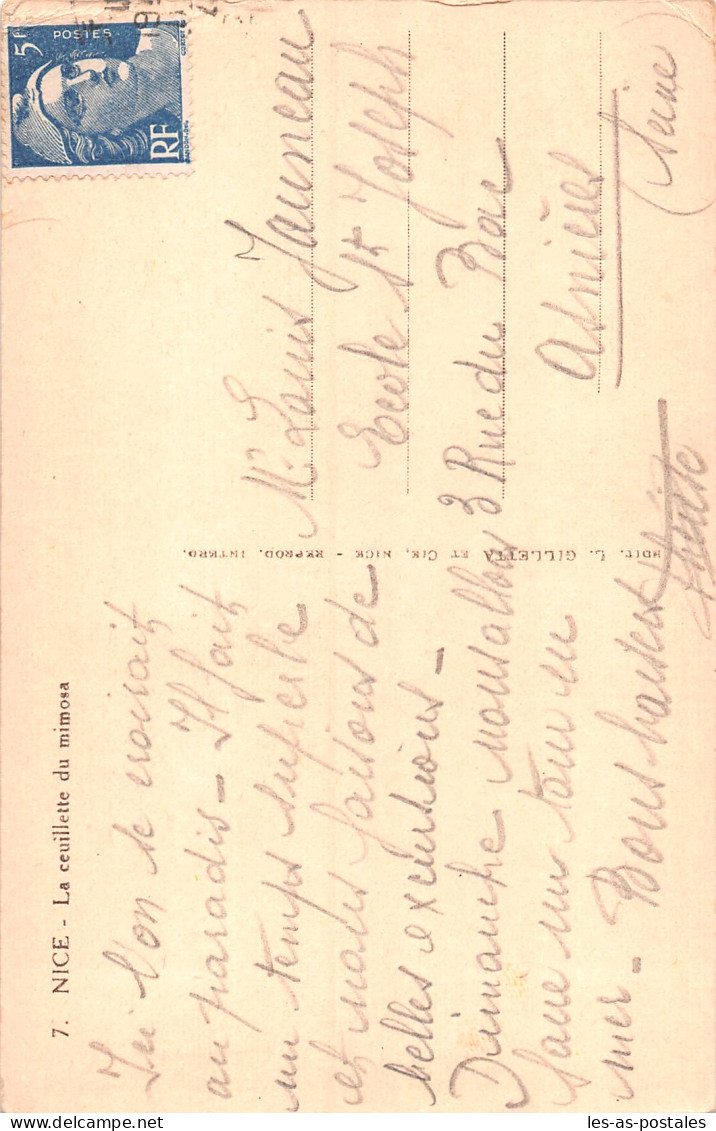 7. NICE - La ceuillette du mimosa
Ici l'on se croirait
au paradis - Il fait
un temps superbe
et nous faisons de
belles excursions -
Dimanche nous allons
faire un tour en
mer - Bons baisers
EDIT. L. GILLETTA ET CIE, NICE - REPROD. INTERD.
5F
POSTES
RF
Mr. Louis Jauneau
Ecole St Joseph
3 Rue du Bac
Asnières
(Seine)
les-as-postales